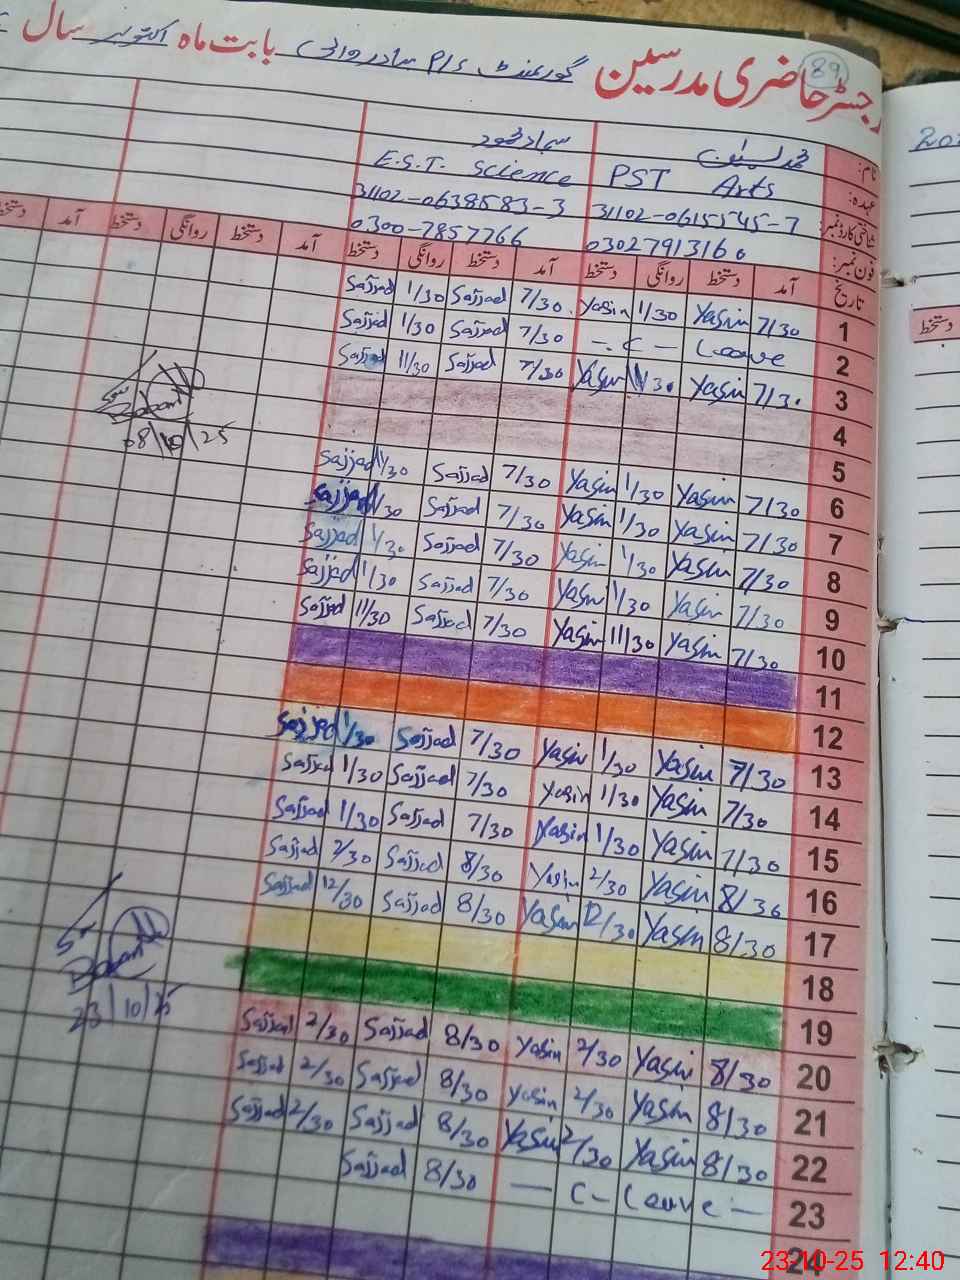 89
رجسٹر حاضری مدرسین گورنمنٹ P/S بابت ماہ اکتوبر سال
نام: محمد یٰسین سجاد محمود
عہدہ: PST Arts E.S.T. Science
شناختی کارڈ نمبر: 31102-0615545-7 31102-0638583-3
فون نمبر: 03027913160 0300-7857766
تاریخ آمد دستخط روانگی دستخط آمد دستخط روانگی دستخط آمد دستخط روانگی دستخط آمد دستخط
1 7/30 Yasin 1/30 Yasin 7/30 Sajjad 1/30 Sajjad
2 Leave - C - 7/30 Sajjad 1/30 Sajjad
3 7/30 Yasin 11/30 Yasin 7/30 Sajjad 11/30 Sajjad
4
5
6 7/30 Yasin 1/30 Yasin 7/30 Sajjad 1/30 Sajjad
7 7/30 Yasin 1/30 Yasin 7/30 Sajjad 1/30 Sajjad
8 7/30 Yasin 1/30 Yasin 7/30 Sajjad 1/30 Sajjad
9 7/30 Yasin 1/30 Yasin 7/30 Sajjad 1/30 Sajjad
10 7/30 Yasin 11/30 Yasin 7/30 Sajjad 11/30 Sajjad
11
12
13 7/30 Yasin 1/30 Yasin 7/30 Sajjad 1/30 Sajjad
14 7/30 Yasin 1/30 Yasin 7/30 Sajjad 1/30 Sajjad
15 7/30 Yasin 1/30 Yasin 7/30 Sajjad 1/30 Sajjad
16 8/30 Yasin 2/30 Yasin 8/30 Sajjad 2/30 Sajjad
17 8/30 Yasin 12/30 Yasin 8/30 Sajjad 12/30 Sajjad
18
19
20 8/30 Yasin 2/30 Yasin 8/30 Sajjad 2/30 Sajjad
21 8/30 Yasin 2/30 Yasin 8/30 Sajjad 2/30 Sajjad
22 8/30 Yasin 2/30 Yasin 8/30 Sajjad 2/30 Sajjad
23 — C - Leave - 8/30 Sajjad
24
08/10/25
23/10/25
دستخط
23-10-25 12:40